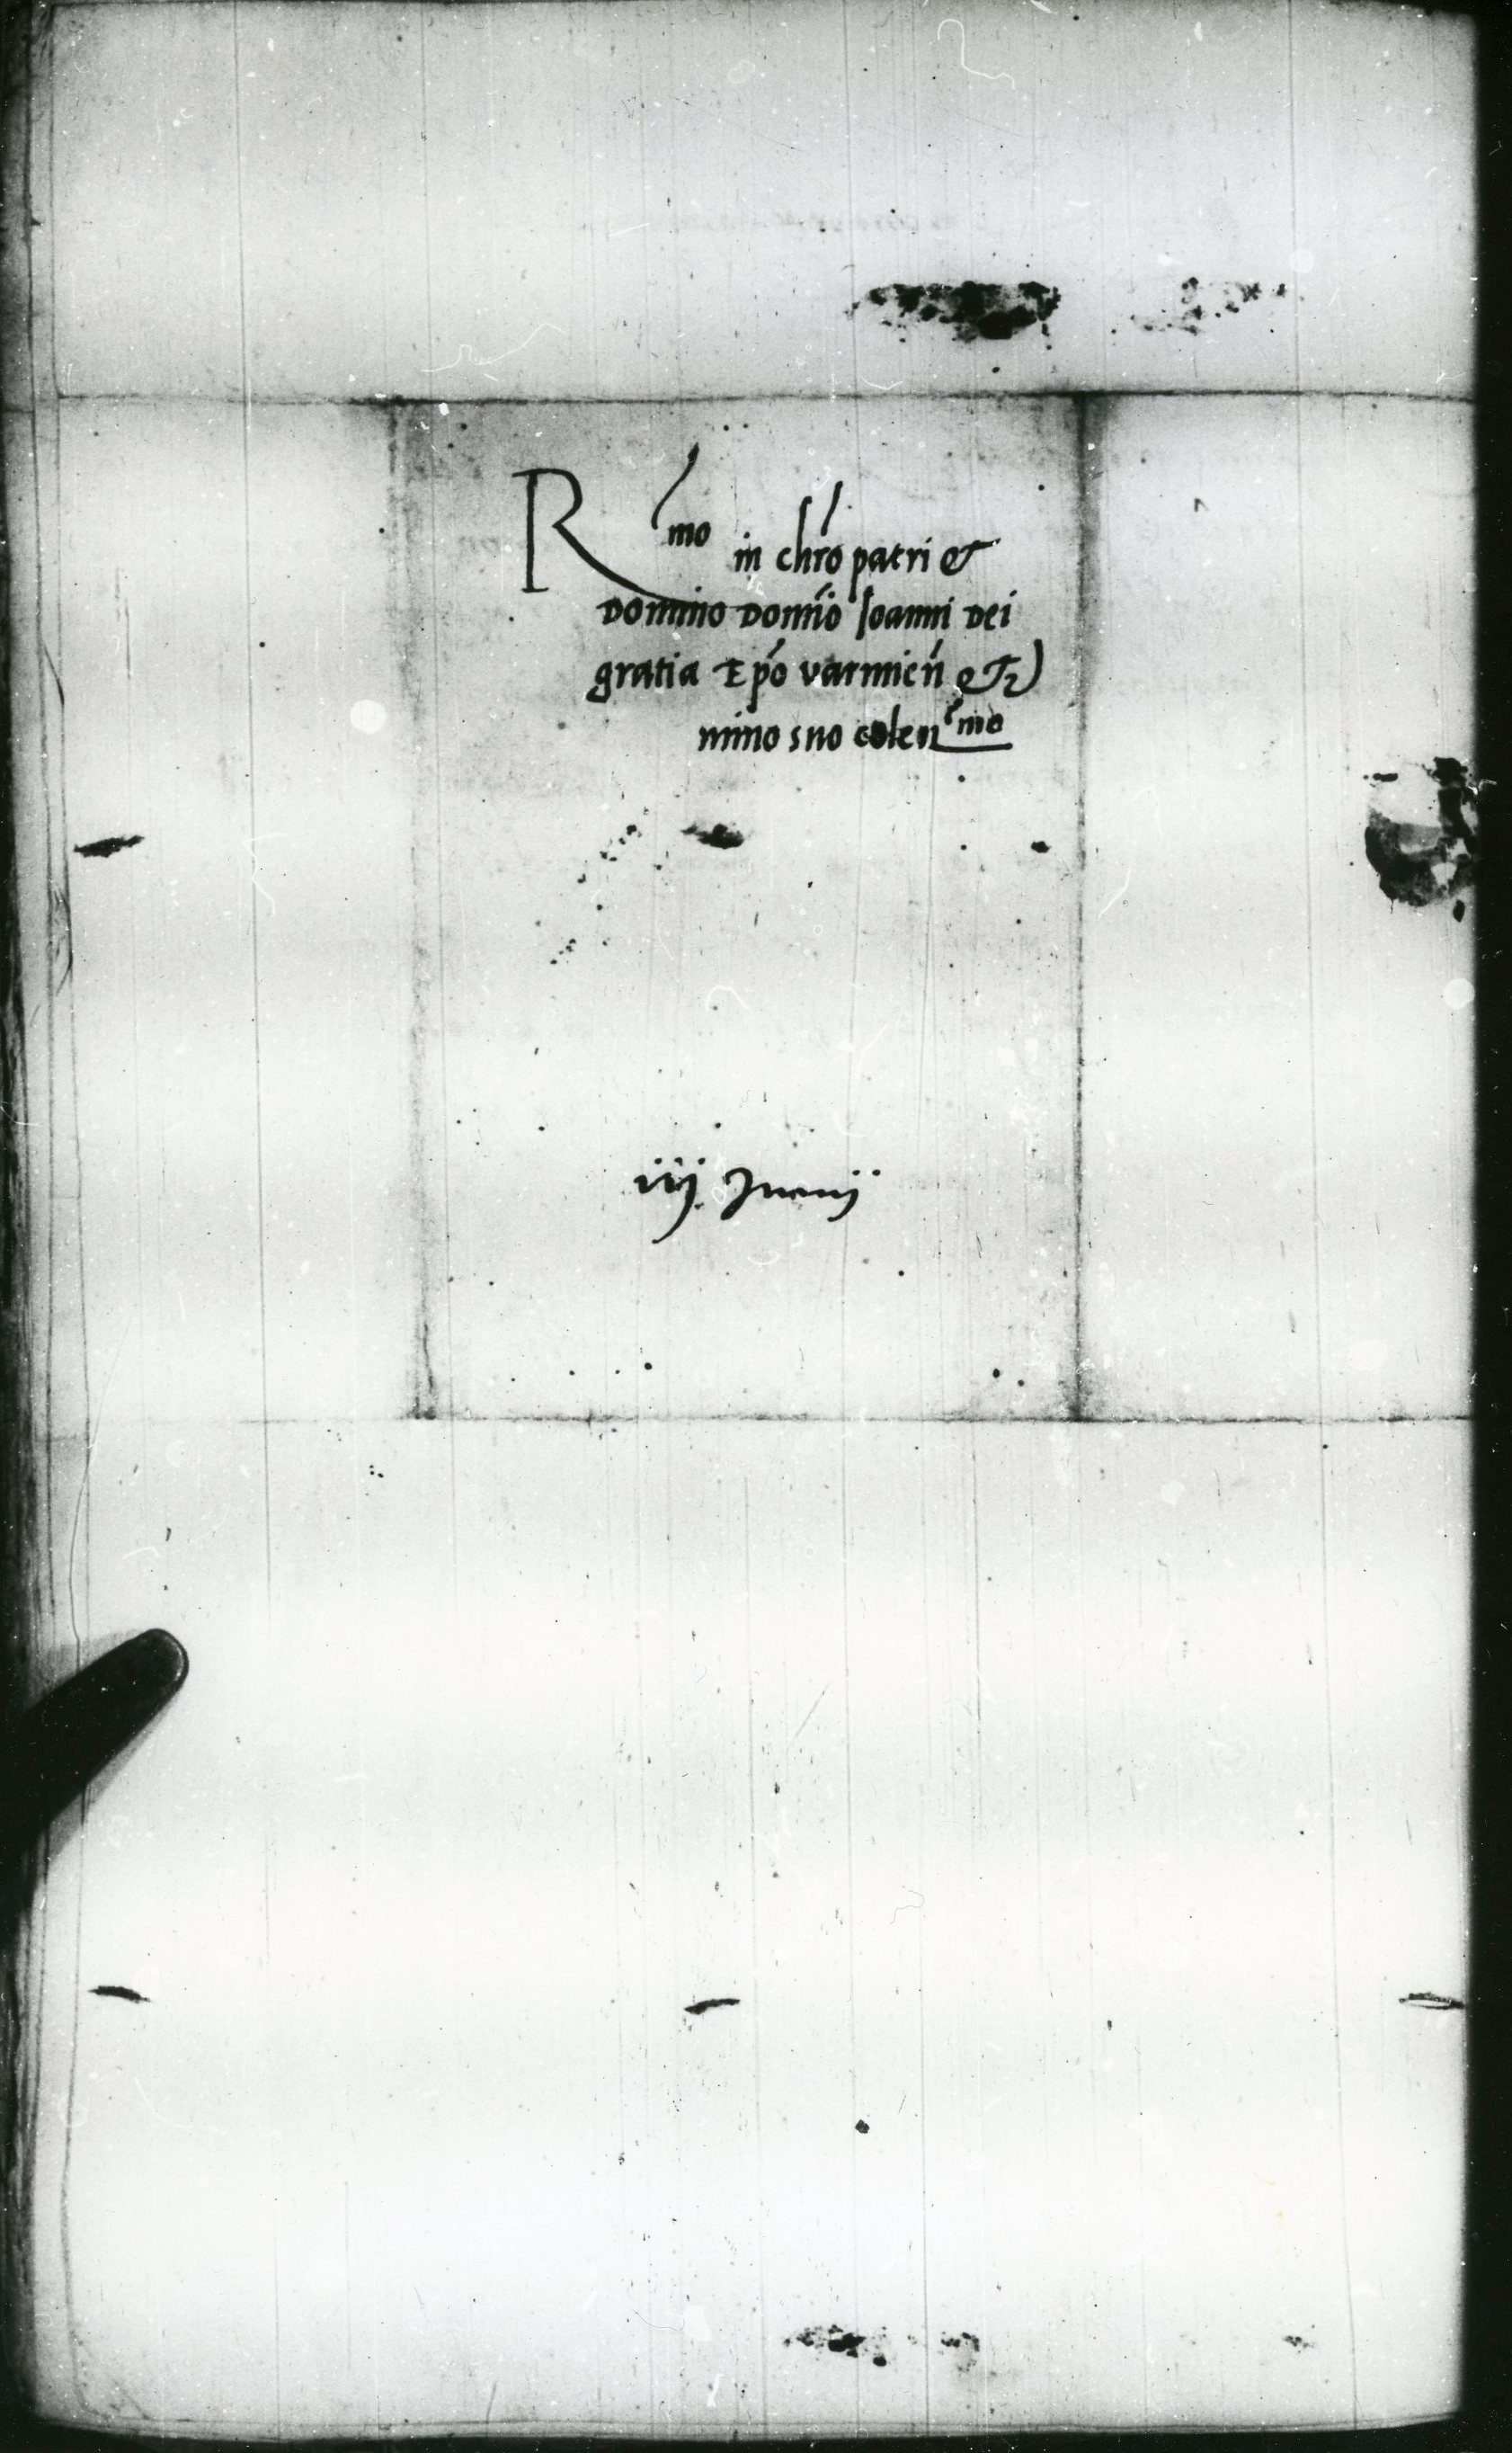 Rmo in chro patri et
domino domīo Ioanni dei
gratia Epo varmieñ etc
mino suo colenmo
iij Junij